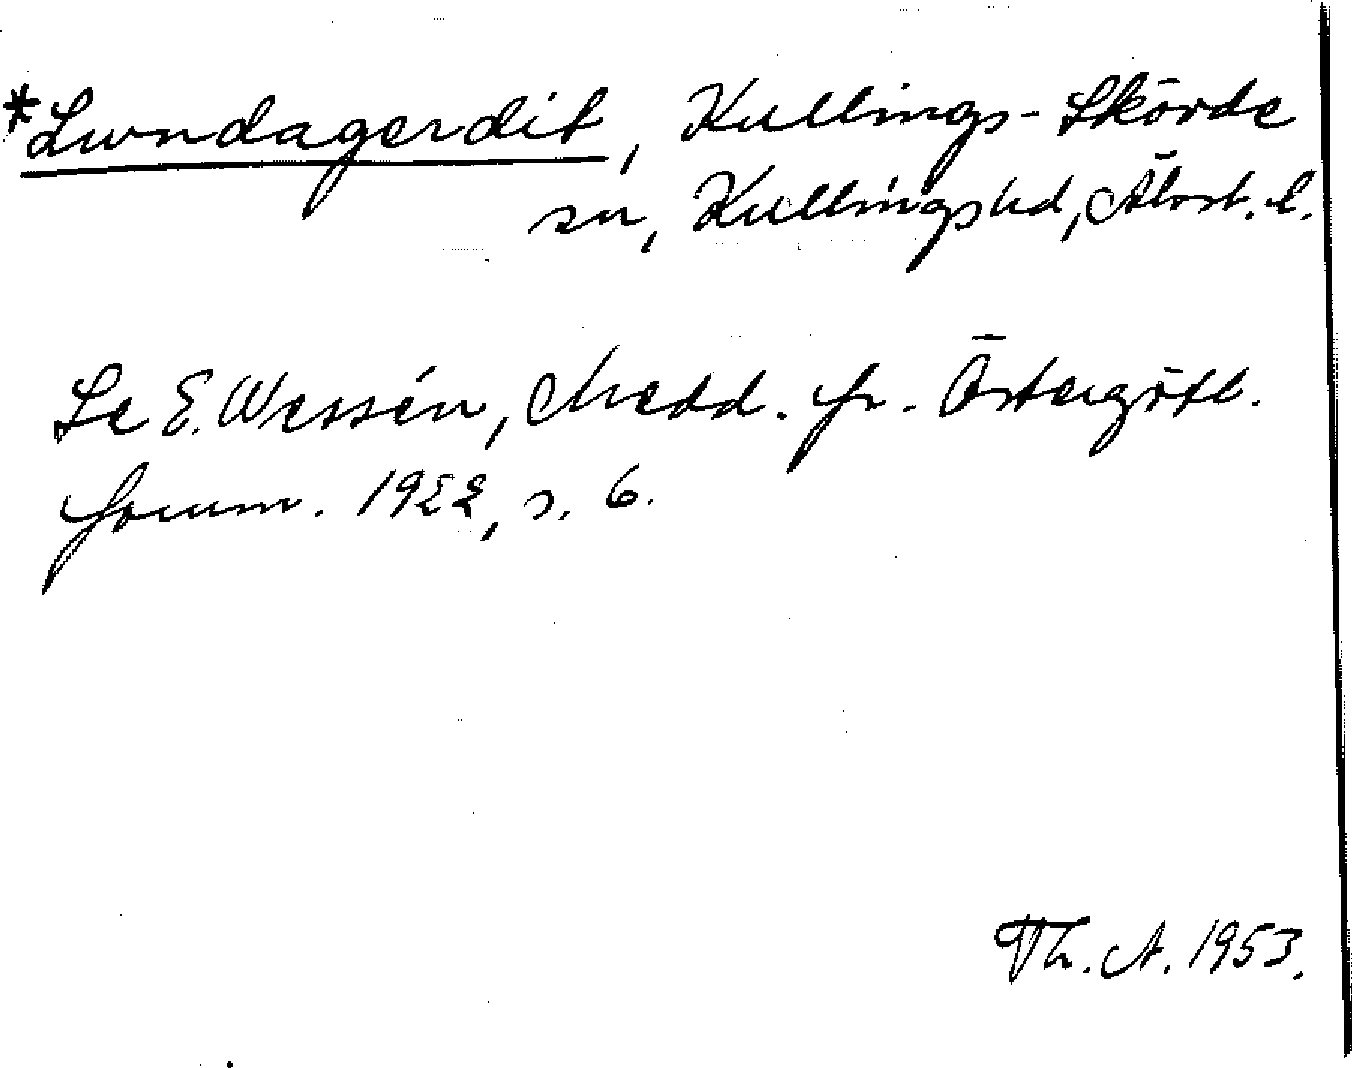 *Lwndagerdit, Kullings-Skövde
sn, Kullings hd, Älvsb. l.
Se E. Wessén, Medd. fr. Östergötl.
fornm. 1922, s. 6.
Th. A. 1953.